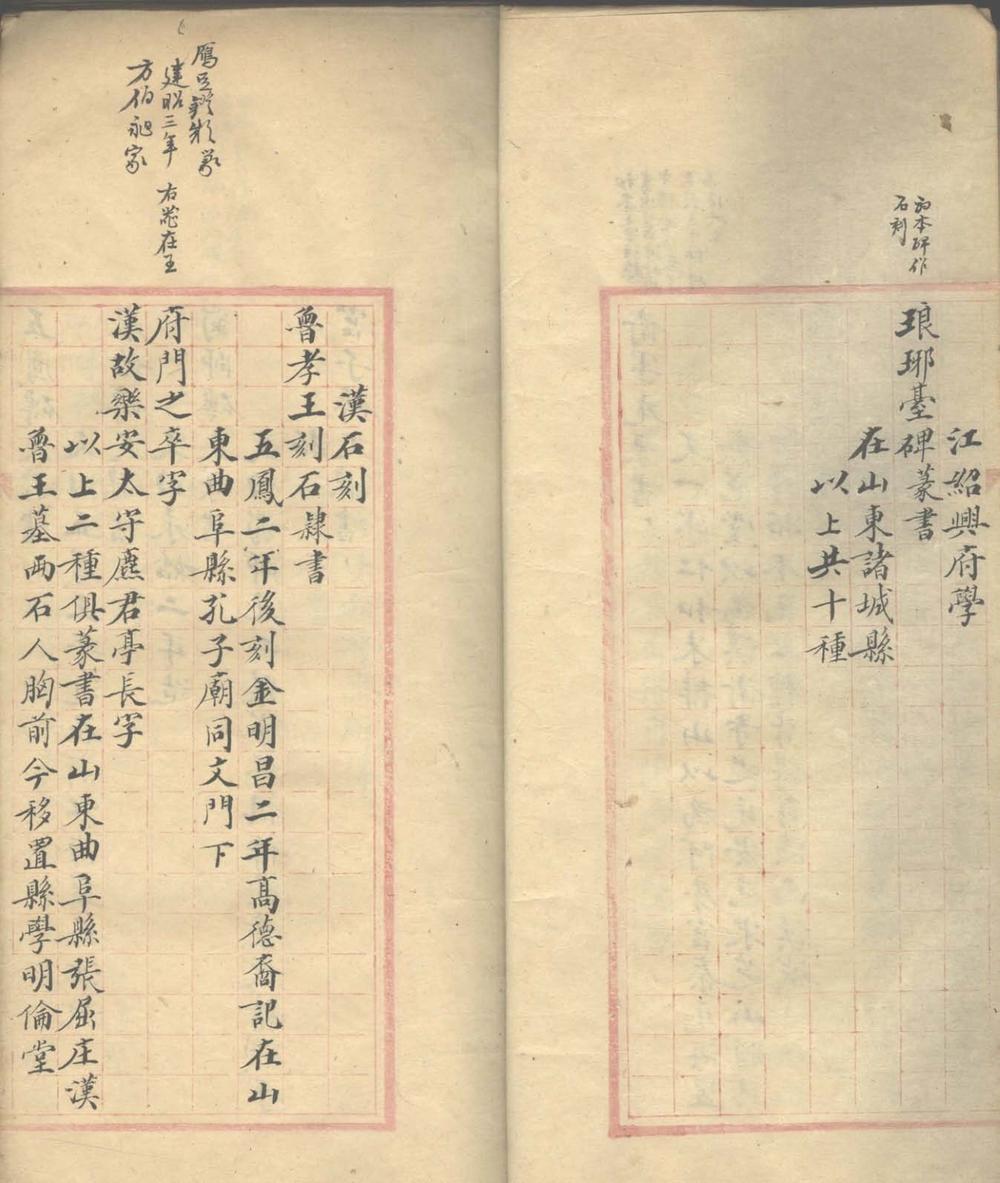 石刻
江紹興府學
琅琊臺碑篆書
在山東諸城縣
以上共十種
建昭三年 右器在王
方伯昶家
漢石刻
魯孝王刻石隸書
五鳳二年後刻金明昌二年高德裔記在山
東曲阜縣孔子廟同文門下
府門之卒字
漢故樂安太守麃君亭長字
以上二種俱篆書在山東曲阜縣張屈庄漢
魯王墓兩石人胸前今移置縣學明倫堂